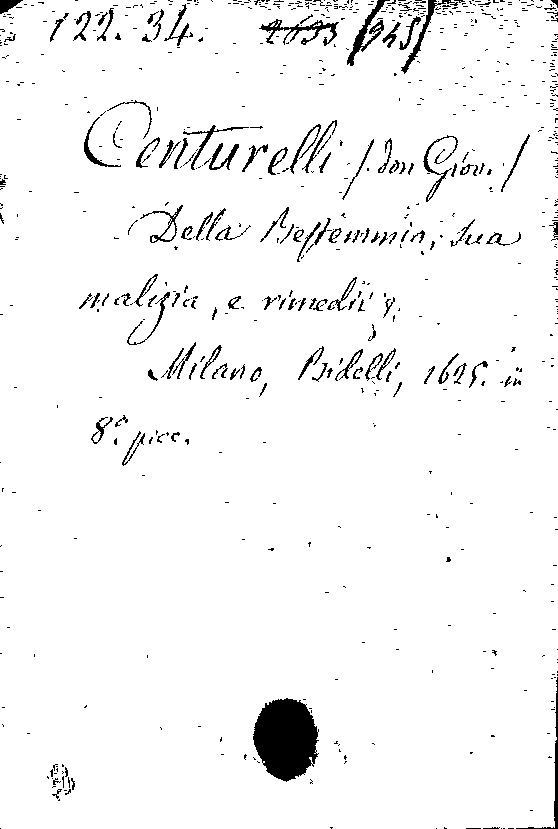 122. 34. 2633 (945)
Centurelli /don Giov./
Della Bestemmia, sua
malizia, e rimedii &.
Milano, Bidelli, 1625. in
8.° picc.